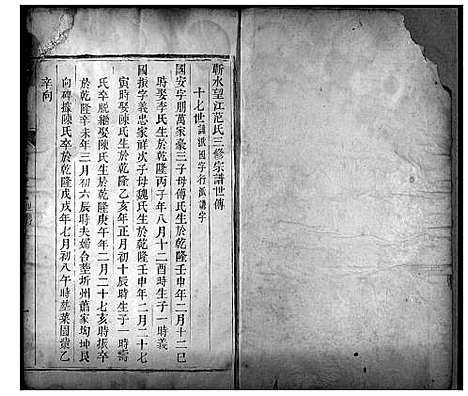 蘄水望江范氏三修宗譜世傳
十七世諱派國字行派謙字
國安字朋萬家豪三子母傅氏生於乾隆壬申年二月十二巳
時娶李氏生於乾隆丙子年八月十二酉時生子一時義
國振字義忠家祥次子母魏氏生於乾隆壬申年二月二十七
寅時娶陳氏生於乾隆乙亥年正月初十辰時生子一時
氏卒脱繼娶陳氏生於乾隆庚午年二月二十七亥時振卒
於乾隆辛未年三月初六辰時夫婦合塟圻州蕭家坳坤艮
向碑據陳氏卒於乾隆戊戌年七月初八午時塟菜園乙
辛向